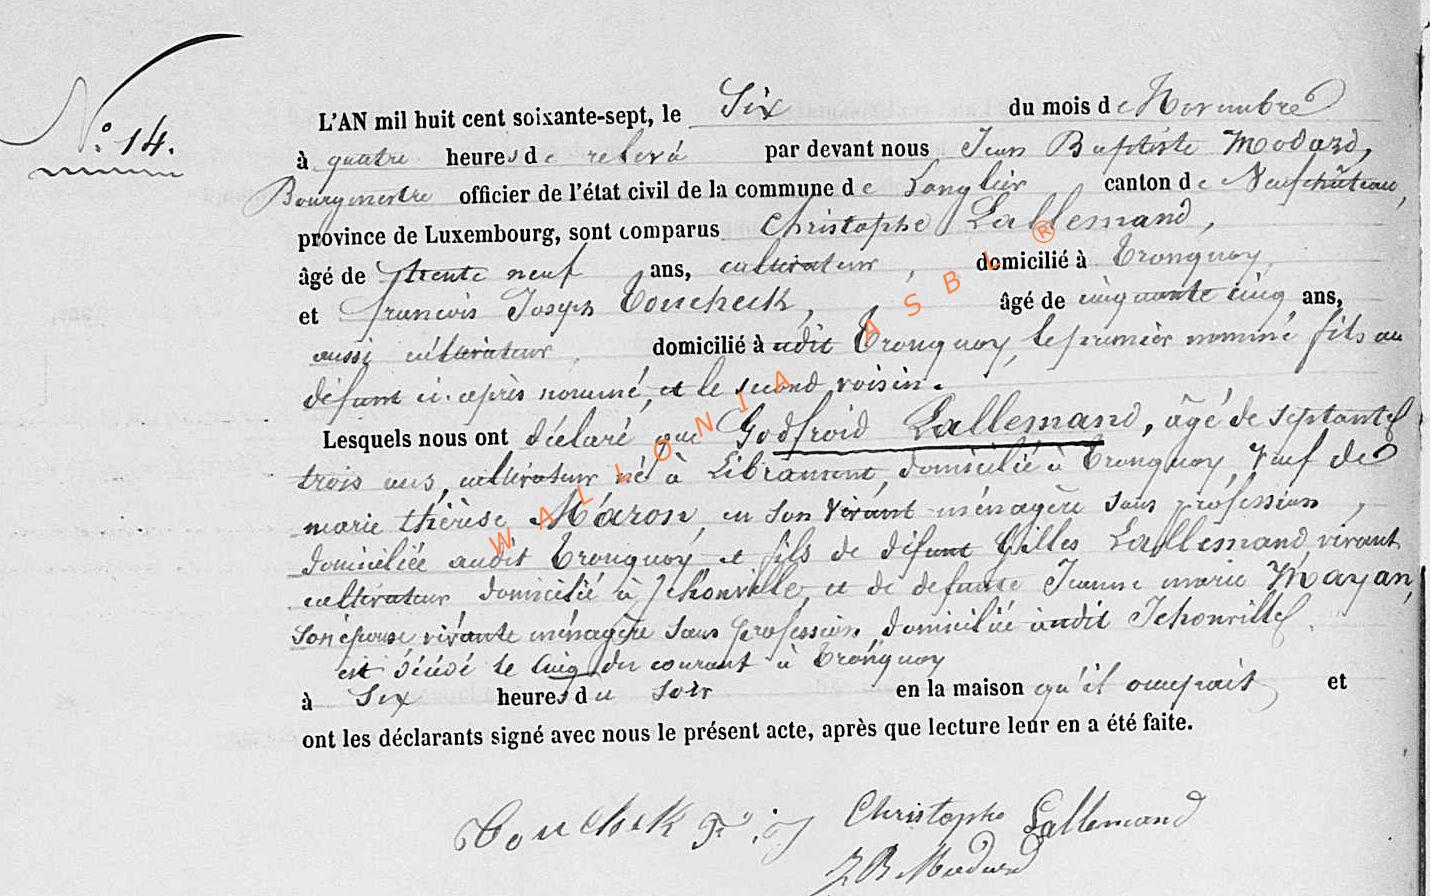 N° 14.
L'AN mil huit cent soixante-sept, le Six du mois de Novembre
à quatre heures de relevé par devant nous Jean Baptiste Modard,
Bourgmestre officier de l'état civil de la commune de Longlier canton de Neufchâteau,
province de Luxembourg, sont comparus Christophe Lallemand,
âgé de trente neuf ans, cultivateur, domicilié à Tronquoy,
et françois Joseph Toucheck, âgé de cinquante cinq ans,
aussi cultivateur, domicilié à udit Tronquoy, le premier nommé fils au
défunt ci-après nommé, et le second voisin.
Lesquels nous ont déclaré que Godfroid Lallemand, âgé de septante
trois ans, cultivateur né à Libramont, domicilié à Tronquoy, veuf de
marie thérèse Maron, en son vivant ménagère sans profession,
domiciliée audit Tronquoy, et fils de défunt Gilles Lallemand, vivant
cultivateur domicilié à Jehonville, et de defunte Jeanne marie Mayan,
son épouse vivante ménagère sans profession, domiciliée audit Jehonville,
est décédé le cinq du courant à Tronquoy
à Six heures du soir en la maison qu'il occupait et
ont les déclarants signé avec nous le présent acte, après que lecture leur en a été faite.
Christophe Lallemand
Toucheck
J B Modard
WALLONIA ASBL ®